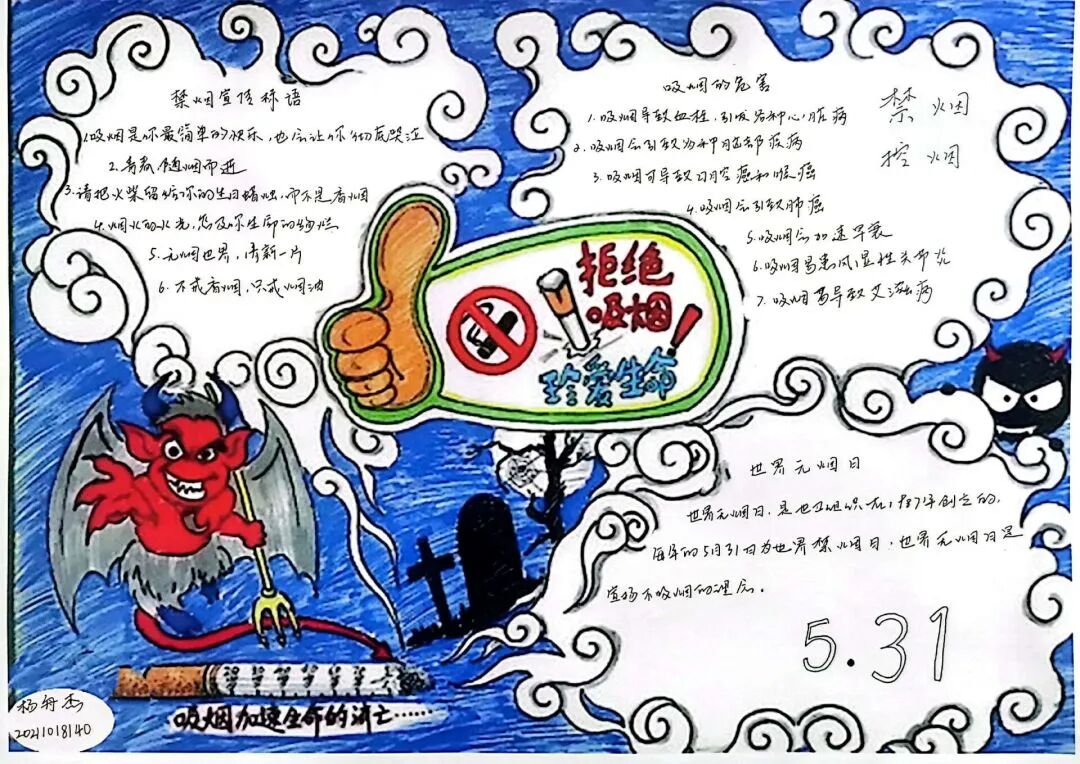 禁烟宣传标语
1.吸烟是你最简单的快乐，也会让你彻底哭泣
2.青春随烟而逝
3.请把火柴留给你的生日蜡烛，而不是香烟
4.烟火的火光，怎及你生命的绚烂
5.无烟世界，清新一片
6.不戒香烟，只戒烟油
吸烟的危害
1.吸烟导致血栓，引发各种心脏病
2.吸烟会引致多种脑部疾病
3.吸烟可导致口腔癌和喉癌
4.吸烟会引致肺癌
5.吸烟会加速早衰
6.吸烟易患风湿性关节炎
7.吸烟易导致艾滋病
禁烟
控烟
拒绝
吸烟！
珍爱生命
世界无烟日
世界无烟日，是世卫组织在1987年创立的，
每年的5月31日为世界禁烟日，世界无烟日是
宣扬不吸烟的理念。
5.31
吸烟加速生命的消亡……
杨舟杰
2021018140